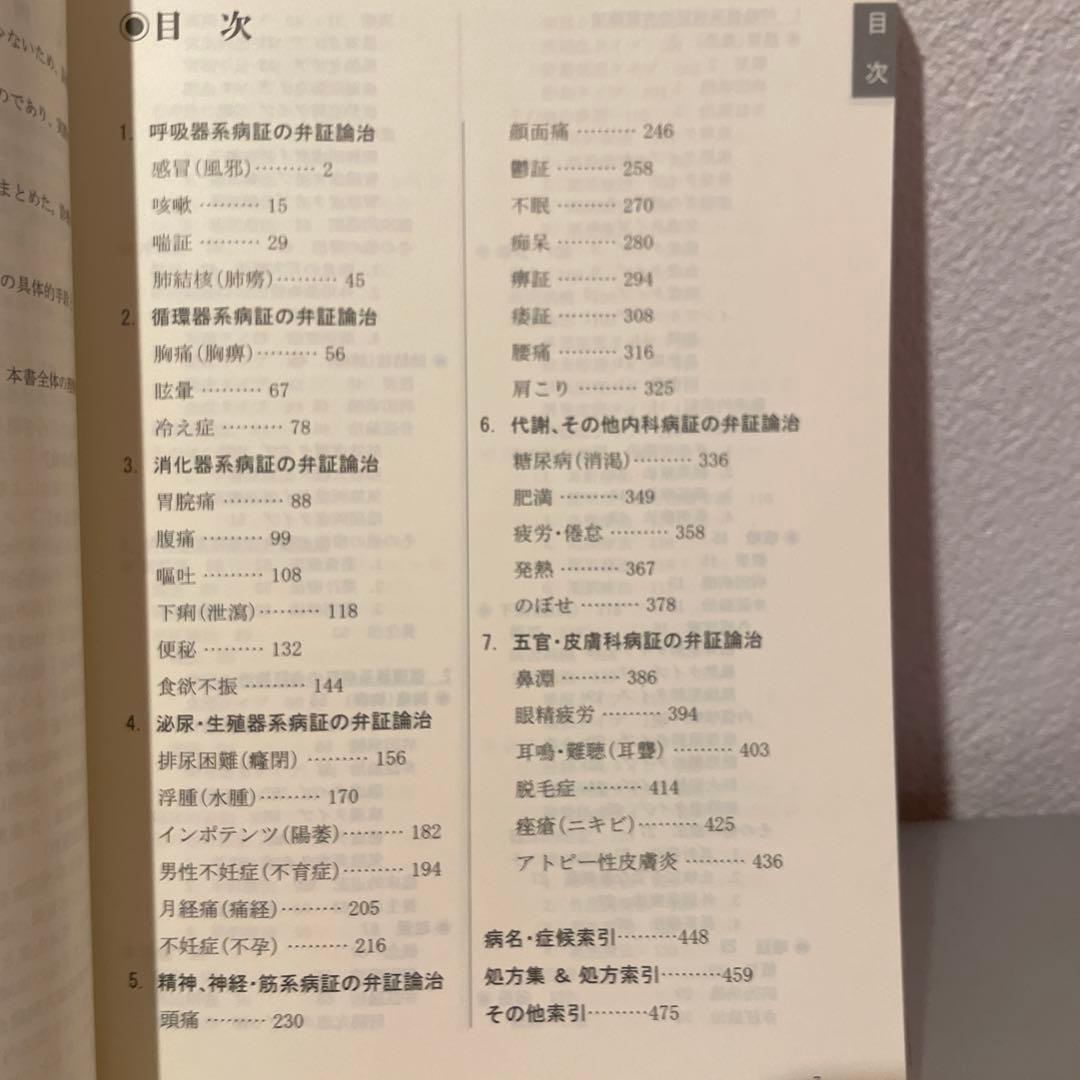 ◉目 次
目
次
1. 呼吸器系病証の弁証論治
感冒(風邪)……… 2
咳嗽 ……… 15
喘証 ……… 29
肺結核(肺癆)……… 45
2. 循環器系病証の弁証論治
胸痛(胸痹)……… 56
眩暈 ……… 67
冷え症 ……… 78
3. 消化器系病証の弁証論治
胃脘痛 ……… 88
腹痛 ……… 99
嘔吐 ……… 108
下痢(泄瀉)……… 118
便秘 ……… 132
食欲不振 ……… 144
4. 泌尿・生殖器系病証の弁証論治
排尿困難(癃閉) ……… 156
浮腫(水腫)……… 170
インポテンツ(陽萎)……… 182
男性不妊症(不育症)……… 194
月経痛(痛経)……… 205
不妊症(不孕) ……… 216
5. 精神、神経・筋系病証の弁証論治
頭痛 ……… 230
顔面痛 ……… 246
鬱証 ……… 258
不眠 ……… 270
痴呆 ……… 280
痹証 ……… 294
痿証 ……… 308
腰痛 ……… 316
肩こり ……… 325
6. 代謝、その他内科病証の弁証論治
糖尿病(消渇)……… 336
肥満 ……… 349
疲労・倦怠 ……… 358
発熱 ……… 367
のぼせ ……… 378
7. 五官・皮膚科病証の弁証論治
鼻淵 ……… 386
眼精疲労 ……… 394
耳鳴・難聴(耳聾) ……… 403
脱毛症 ……… 414
痤瘡(ニキビ)……… 425
アトピー性皮膚炎 ……… 436
病名・症候索引………448
処方集 & 処方索引………459
その他索引………475
ないため、
のであり、
まとめた。
の具体的手
本書全体の